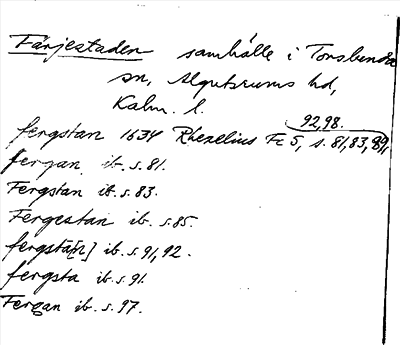 Färjestaden samhälle i Torslunda
sn, Algutsrums hd,
Kalm. l.
92, 98.
fergstan 1634 Rhezelius Fc 5, s. 81, 83, 89,
fergan ib. s. 81.
Fergstan ib. s. 83.
Fergestan ib. s. 85.
fergstä[n] ib. s. 91, 92.
fergsta ib. s. 91.
Fergan ib. s. 97.